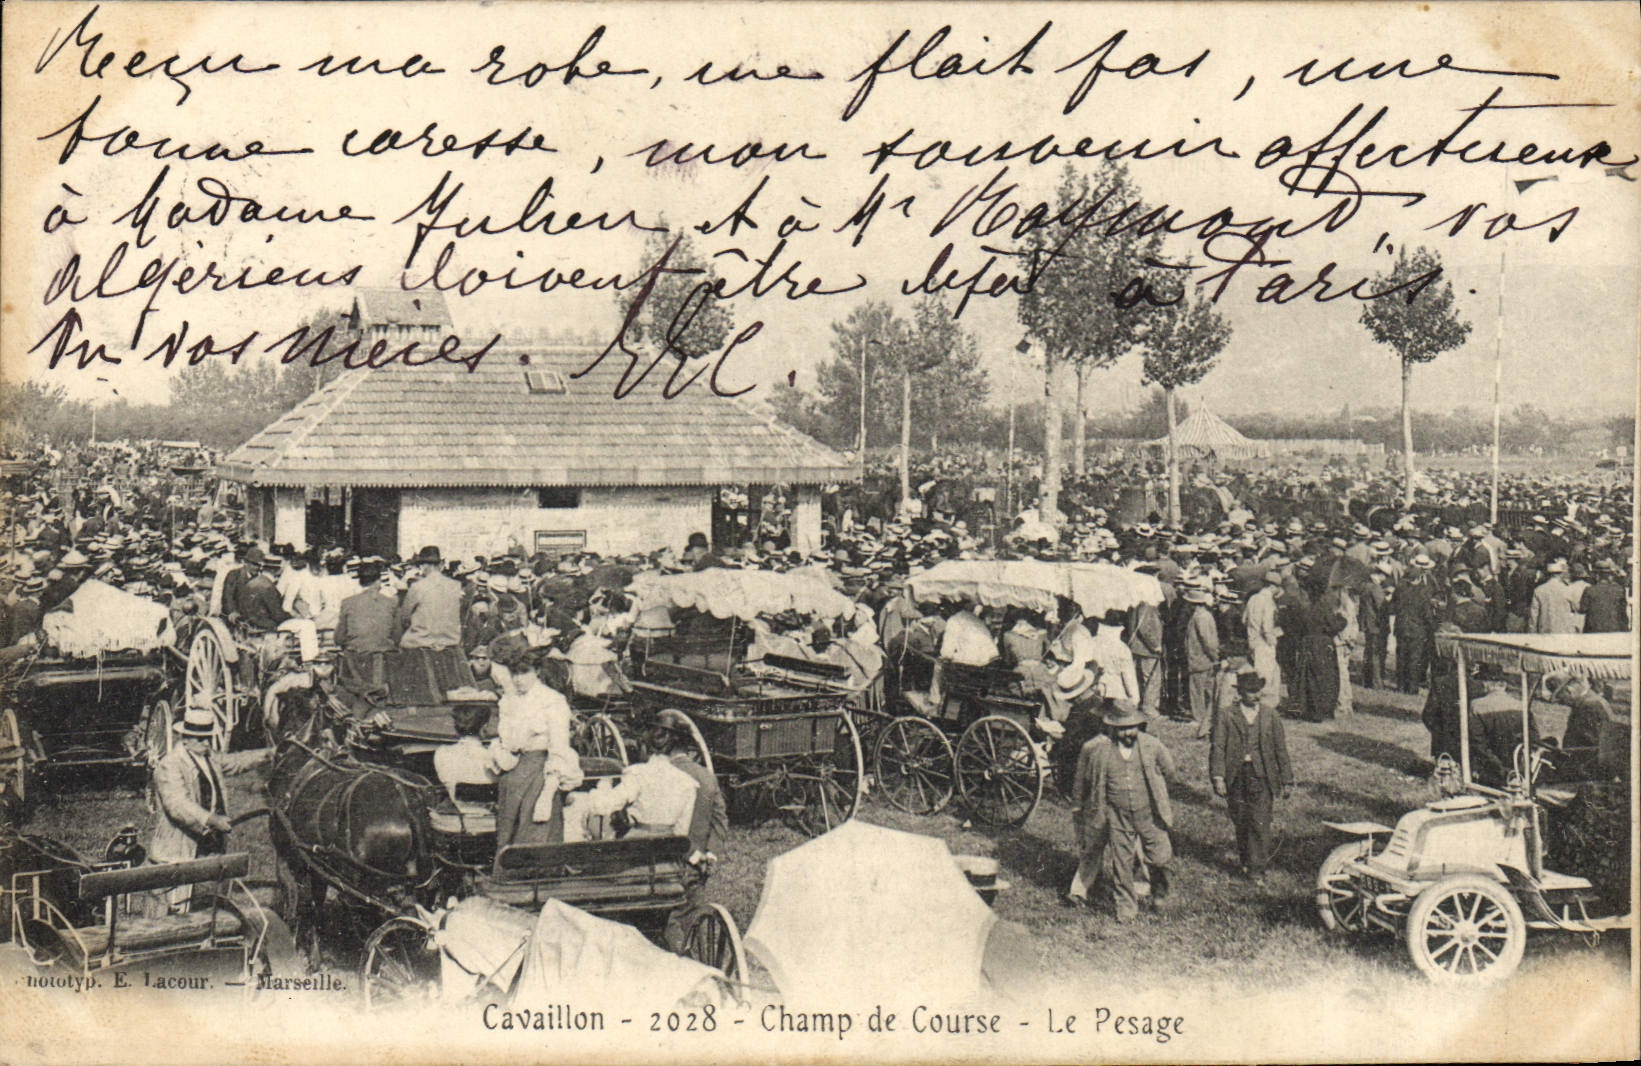 Reçu ma robe, me plait pas, une
bonne caresse, mon souvenir affectueux
à Madame Julien et à Mr Raymond, vos
algériens doivent être déjà à Paris.
Vu vos nièces. EEC.
hototyp. E. Lacour. — Marseille.
Cavaillon - 2028 - Champ de Course - Le Pesage